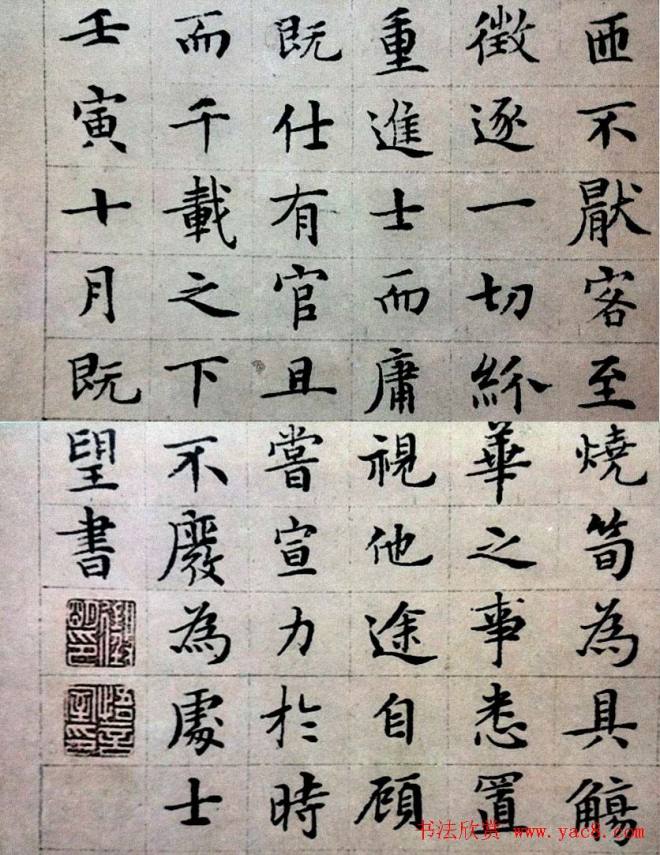 匝不厭客至燒筍為具觴
徵逐一切紛華之事悉置
重進士而庸視他途自顧
既仕有官且嘗宣力於時
而千載之下不廢為處士
壬寅十月既望書
书法欣赏 www.yac8.com